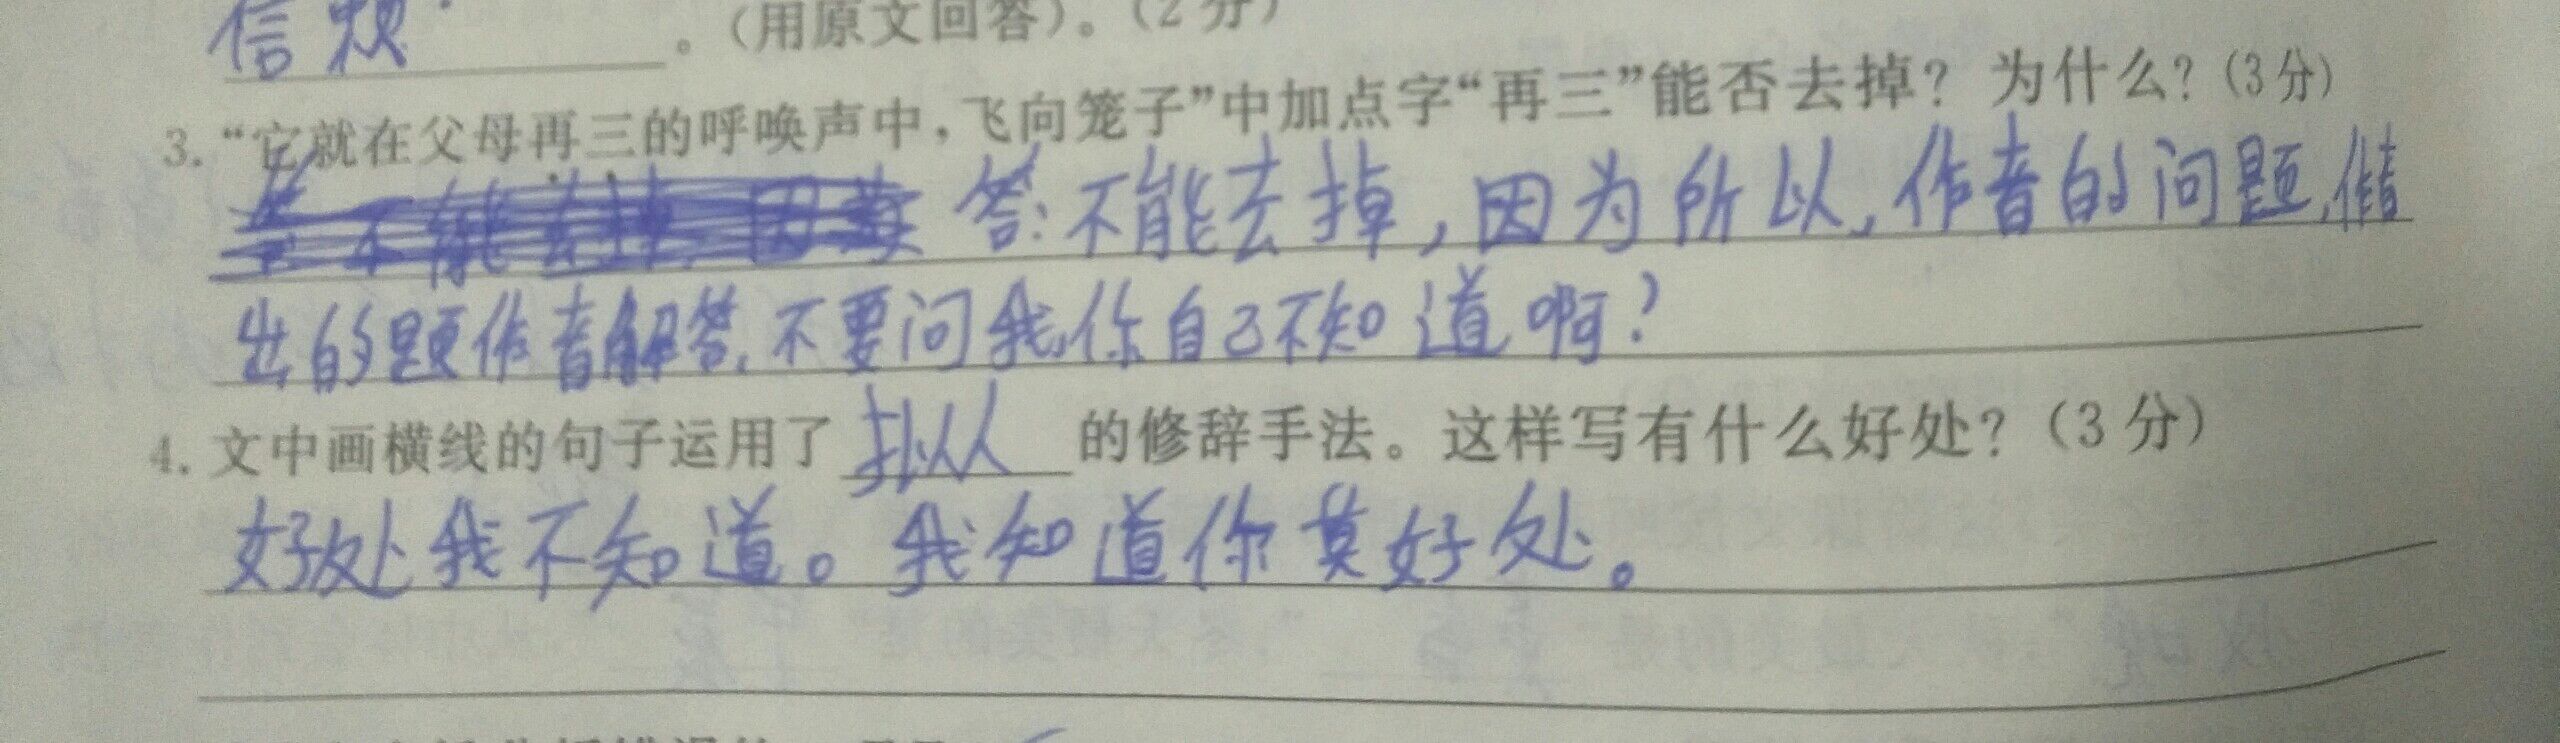 信赖。（用原文回答）。（2分）
3. “它就在父母再三的呼唤声中，飞向笼子”中加点字“再三”能否去掉？为什么？（3分）
答：不能去掉，因为所以，作者的问题，作者
出的题作者解答，不要问我，你自己不知道啊？
4. 文中画横线的句子运用了拟人的修辞手法。这样写有什么好处？（3分）
好处我不知道。我知道你莫好处。